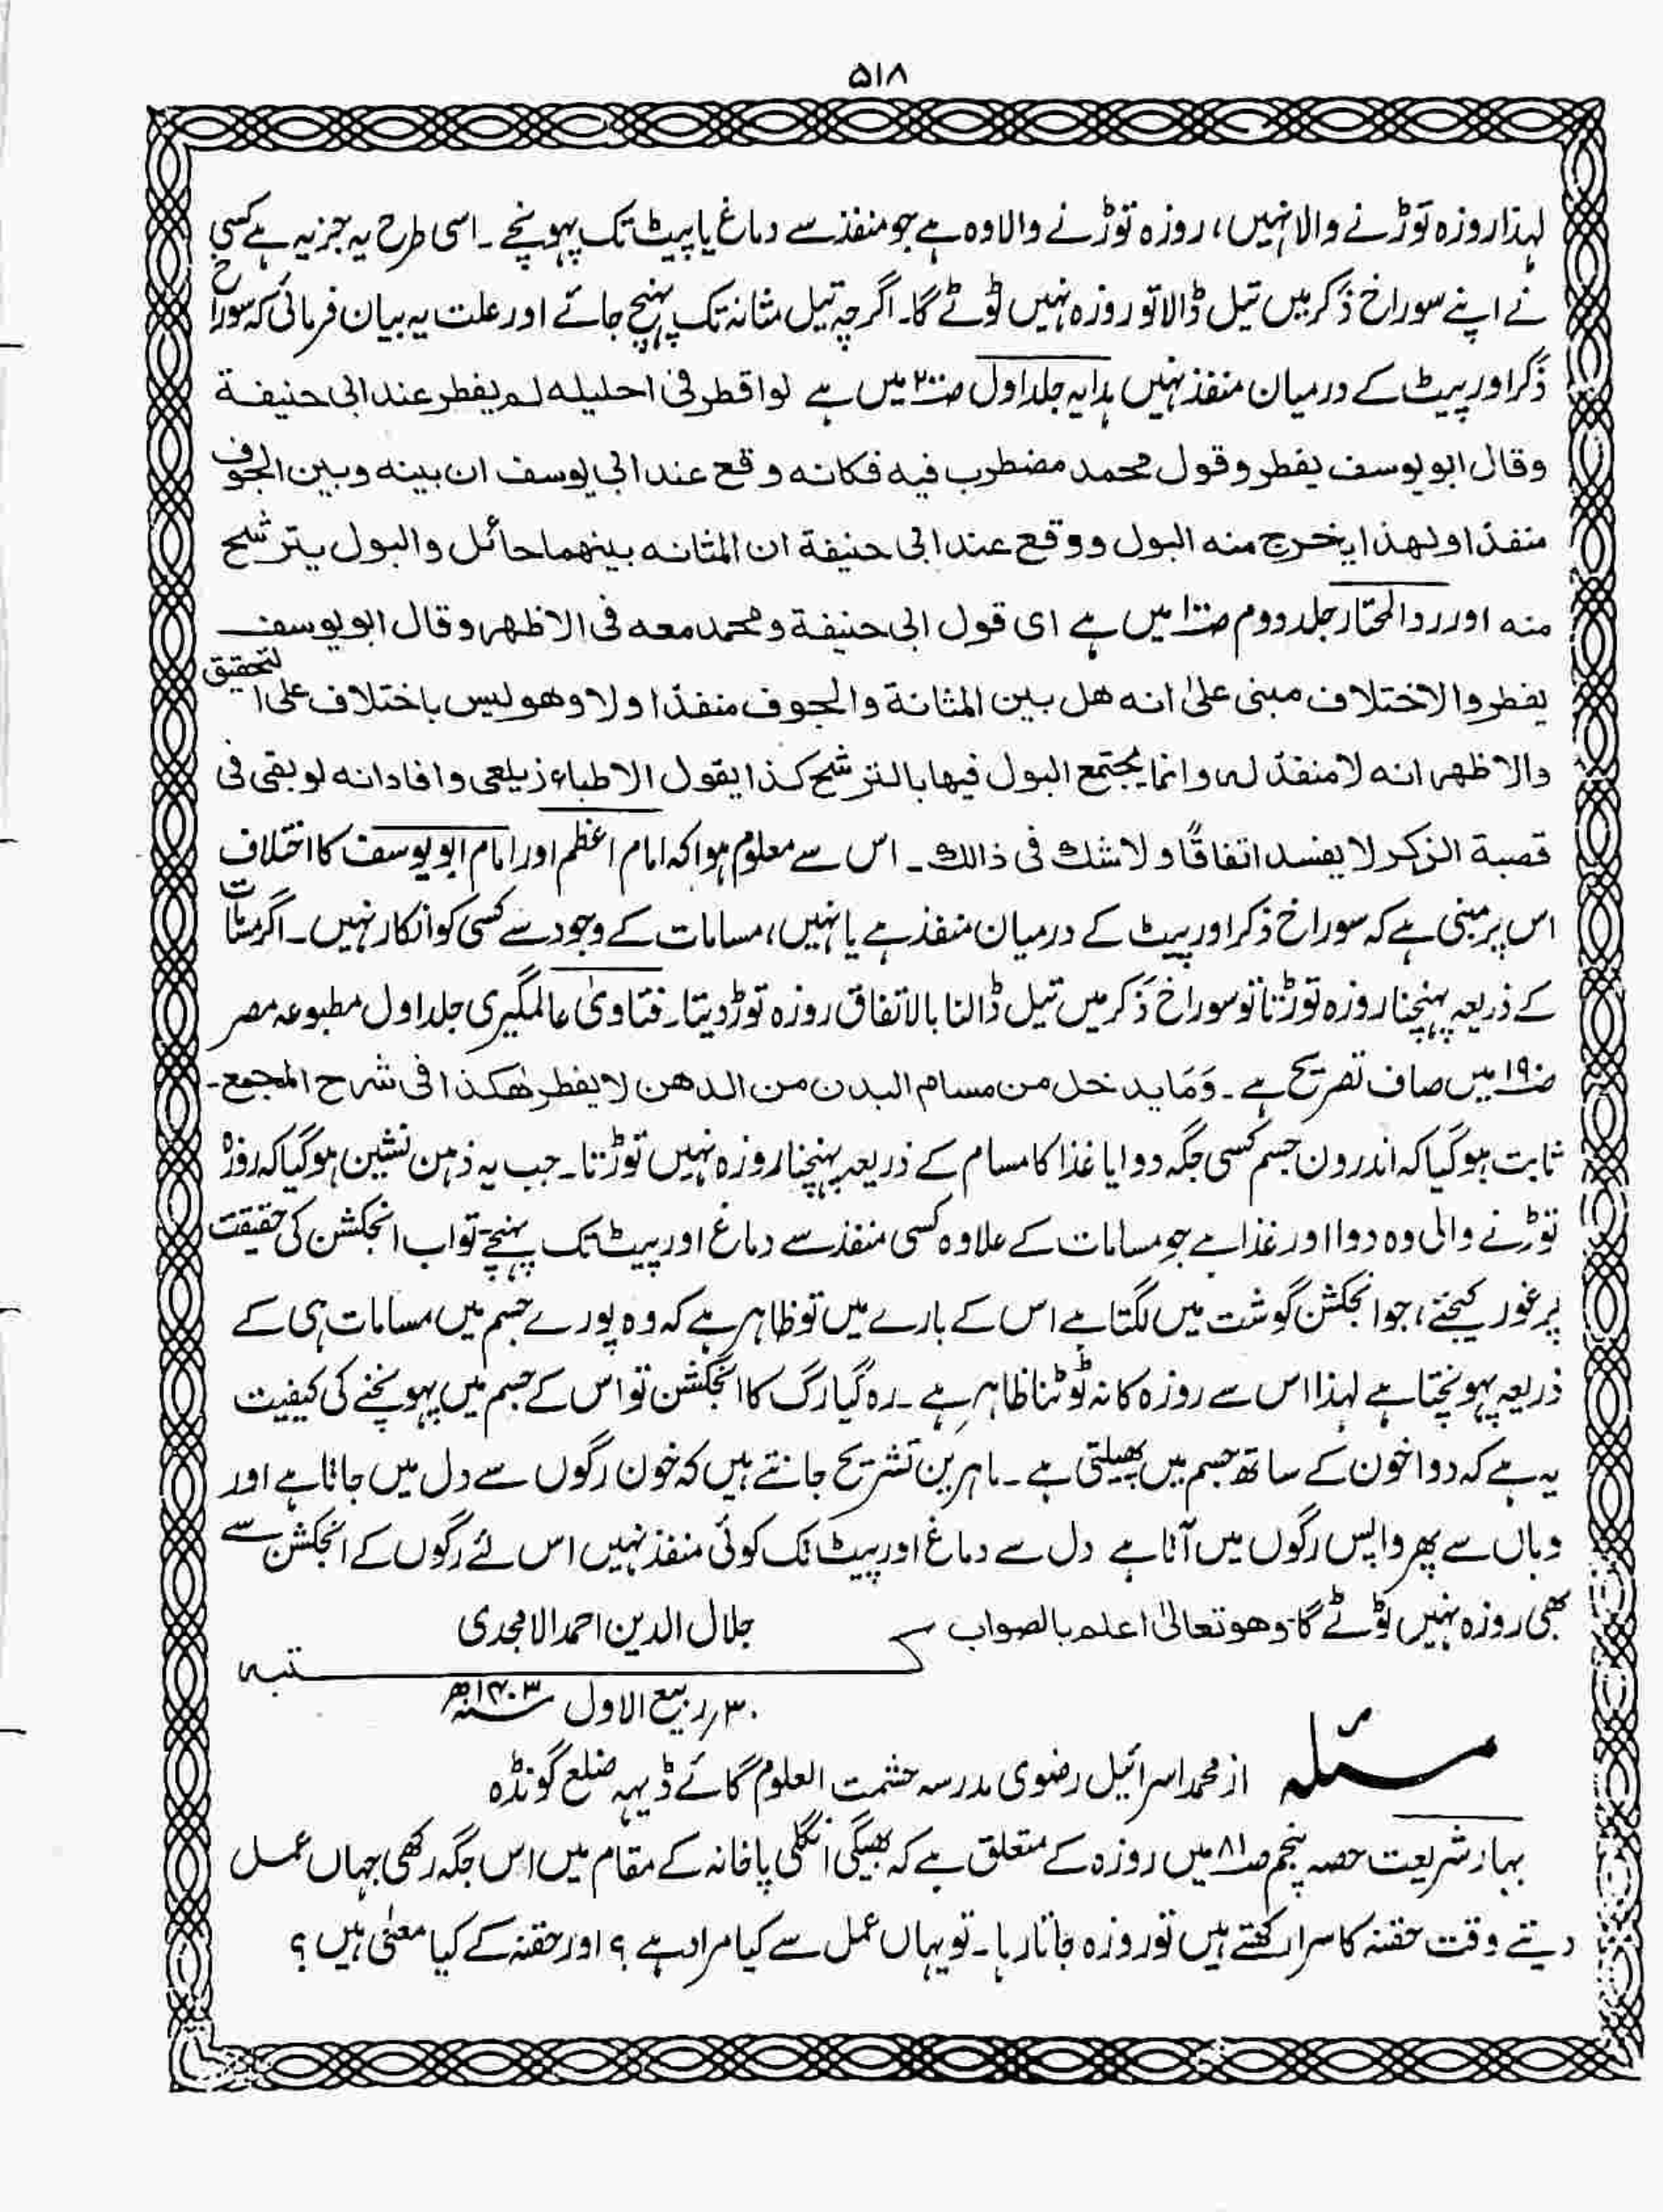 ۵۱۸
لہذا روزہ توڑنے والا نہیں، روزہ توڑنے والا وہ ہے جو منفذ سے دماغ یا پیٹ تک پہونچے ۔ اسی طرح یہ جزیہ ہے کسی
نے اپنے سوراخ ذَکر میں تیل ڈالا تو روزہ نہیں ٹوٹے گا۔ اگرچہ تیل مثانہ تک پہنچ جائے اور علت یہ بیان فرمائی کہ سوراخ
ذَکر اور پیٹ کے درمیان منفذ نہیں ہدایہ جلد اول ص۲۰۰ میں ہے لو اقطر فی احلیلہ لم یفطر عند ابی حنیفۃ
وقال ابو یوسف یفطر وقول محمد مضطرب فیہ فکانہ وقع عند ابی یوسف ان بینہ وبین الجوف
منفذا ولہذا یخرج منہ البول ووقع عند ابی حنیفۃ ان المثانہ بینھما حائل والبول یترشح
منہ اور ردالمحتار جلد دوم ص۱۰۰ میں ہے ای قول ابی حنیفۃ ومحمد معہ فی الاظھر وقال ابو یوسف
یفطر والاختلاف مبنی علیٰ انہ ھل بین المثانۃ والجوف منفذ او لا وھو لیس باختلاف علی التحقیق
والاظھر انہ لا منفذ لہ وانما یجتمع البول فیھا بالترشح کذا یقول الاطباء زیلعی وافاد انہ لو بقی فی
قصبۃ الذکر لا یفسد اتفاقًا ولا شك فی ذالك ۔ اس سے معلوم ہوا کہ امام اعظم اور امام ابو یوسف کا اختلاف
اس پر مبنی ہے کہ سوراخ ذکر اور پیٹ کے درمیان منفذ ہے یا نہیں، مسامات کے وجود سے کسی کو انکار نہیں ۔ اگر مسامات
کے ذریعہ پہنچنا روزہ توڑتا تو سوراخ ذَکر میں تیل ڈالنا بالاتفاق روزہ توڑ دیتا۔ فتاویٰ عالمگیری جلد اول مطبوعہ مصر
ص۱۹۰ میں صاف تصریح ہے ۔ وَمَا یدخل من مسام البدن من الدھن لا یفطر ھکذا فی شرح المجمع ۔
ثابت ہوگیا کہ اندرون جسم کسی جگہ دوا یا غذا کا مسام کے ذریعہ پہنچنا روزہ نہیں توڑتا ۔ جب یہ ذہن نشین ہوگیا کہ روزہ
توڑنے والی وہ دوا اور غذا ہے جو مسامات کے علاوہ کسی منفذ سے دماغ اور پیٹ تک پہنچے تو اب انجکشن کی حقیقت
پر غور کیجئے، جو انجکشن گوشت میں لگتا ہے اس کے بارے میں تو ظاہر ہے کہ وہ پورے جسم میں مسامات ہی کے
ذریعہ پہونچتا ہے لہذا اس سے روزہ کا نہ ٹوٹنا ظاہر ہے ۔ رہ گیا رگ کا انجکشن تو اس کے جسم میں پہونچنے کی کیفیت
یہ ہے کہ دوا خون کے ساتھ جسم میں پھیلتی ہے ۔ ماہرین تشریح جانتے ہیں کہ خون رگوں سے دل میں جاتا ہے اور
وہاں سے پھر واپس رگوں میں آتا ہے دل سے دماغ اور پیٹ تک کوئی منفذ نہیں اس لئے رگوں کے انجکشن سے
بھی روزہ نہیں ٹوٹے گا وھو تعالیٰ اعلم بالصواب
جلال الدین احمد الامجدی
کتبہ
۳۰؍ ربیع الاول سنہ۱۴۰۳ھ
مسئلہ از محمد اسرائیل رضوی مدرسہ حشمت العلوم گائے ڈیہہ ضلع گونڈہ
بہار شریعت حصہ پنجم ص۸۱ میں روزہ کے متعلق ہے کہ بھیگی انگلی پاخانہ کے مقام میں اس جگہ رکھی جہاں عمل
دیتے وقت حقنہ کا سرا رکھتے ہیں تو روزہ جاتا رہا ۔ تو یہاں عمل سے کیا مراد ہے ؟ اور حقنہ کے کیا معنٰی ہیں ؟